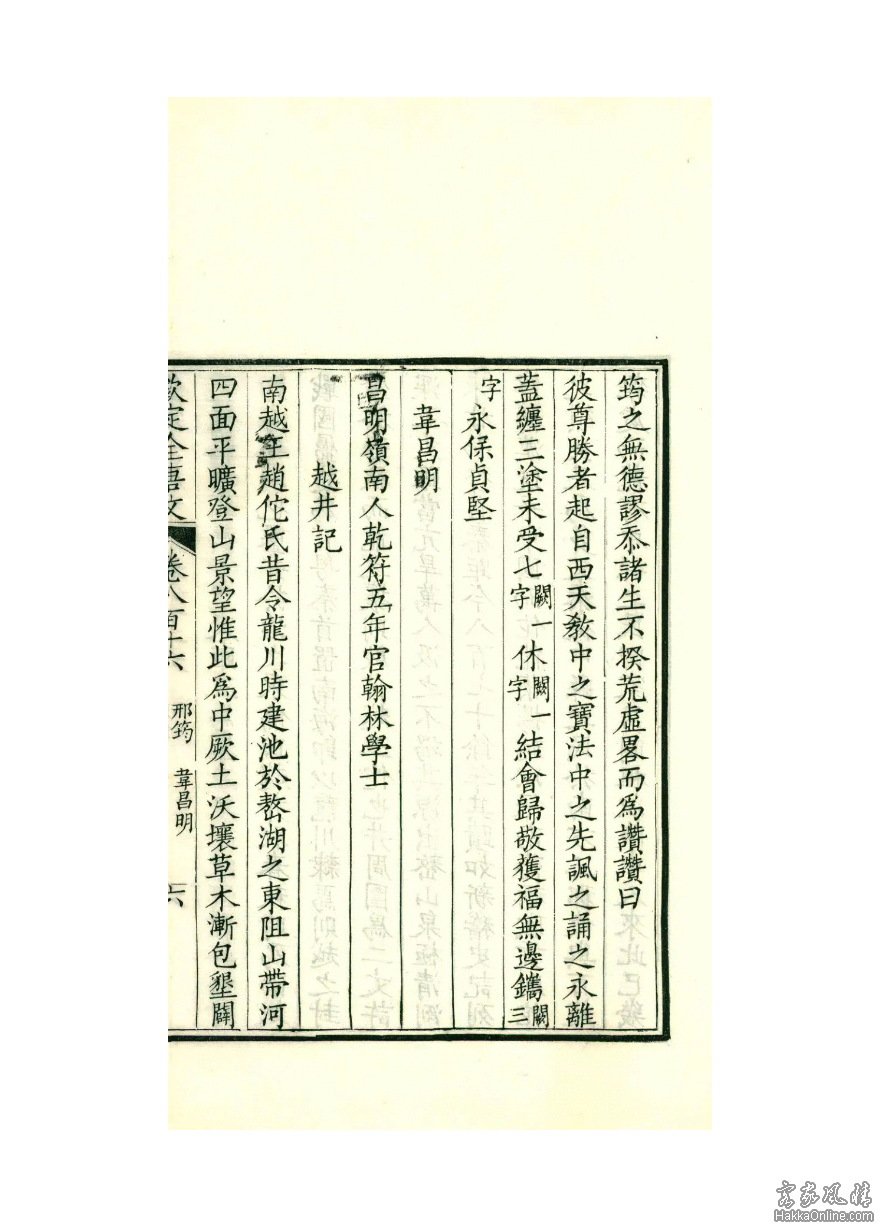 筠之無德謬忝諸生不揆荒虛畧而爲讚讚曰
彼尊勝者起自西天敎中之寶法中之先諷之誦之永離
蓋纏三塗未受七闕一字休闕一字結會歸敬獲福無邊鐫闕三
字永保貞堅
韋昌明
昌明嶺南人乾符五年官翰林學士
越井記
南越王趙佗氏昔令龍川時建池於嶅湖之東阻山帶河
四面平曠登山景望惟此爲中厥土沃壤草木漸包墾闢
欽定全唐文 卷八百十六 邢筠 韋昌明 六
客家風情
HakkaOnline.com